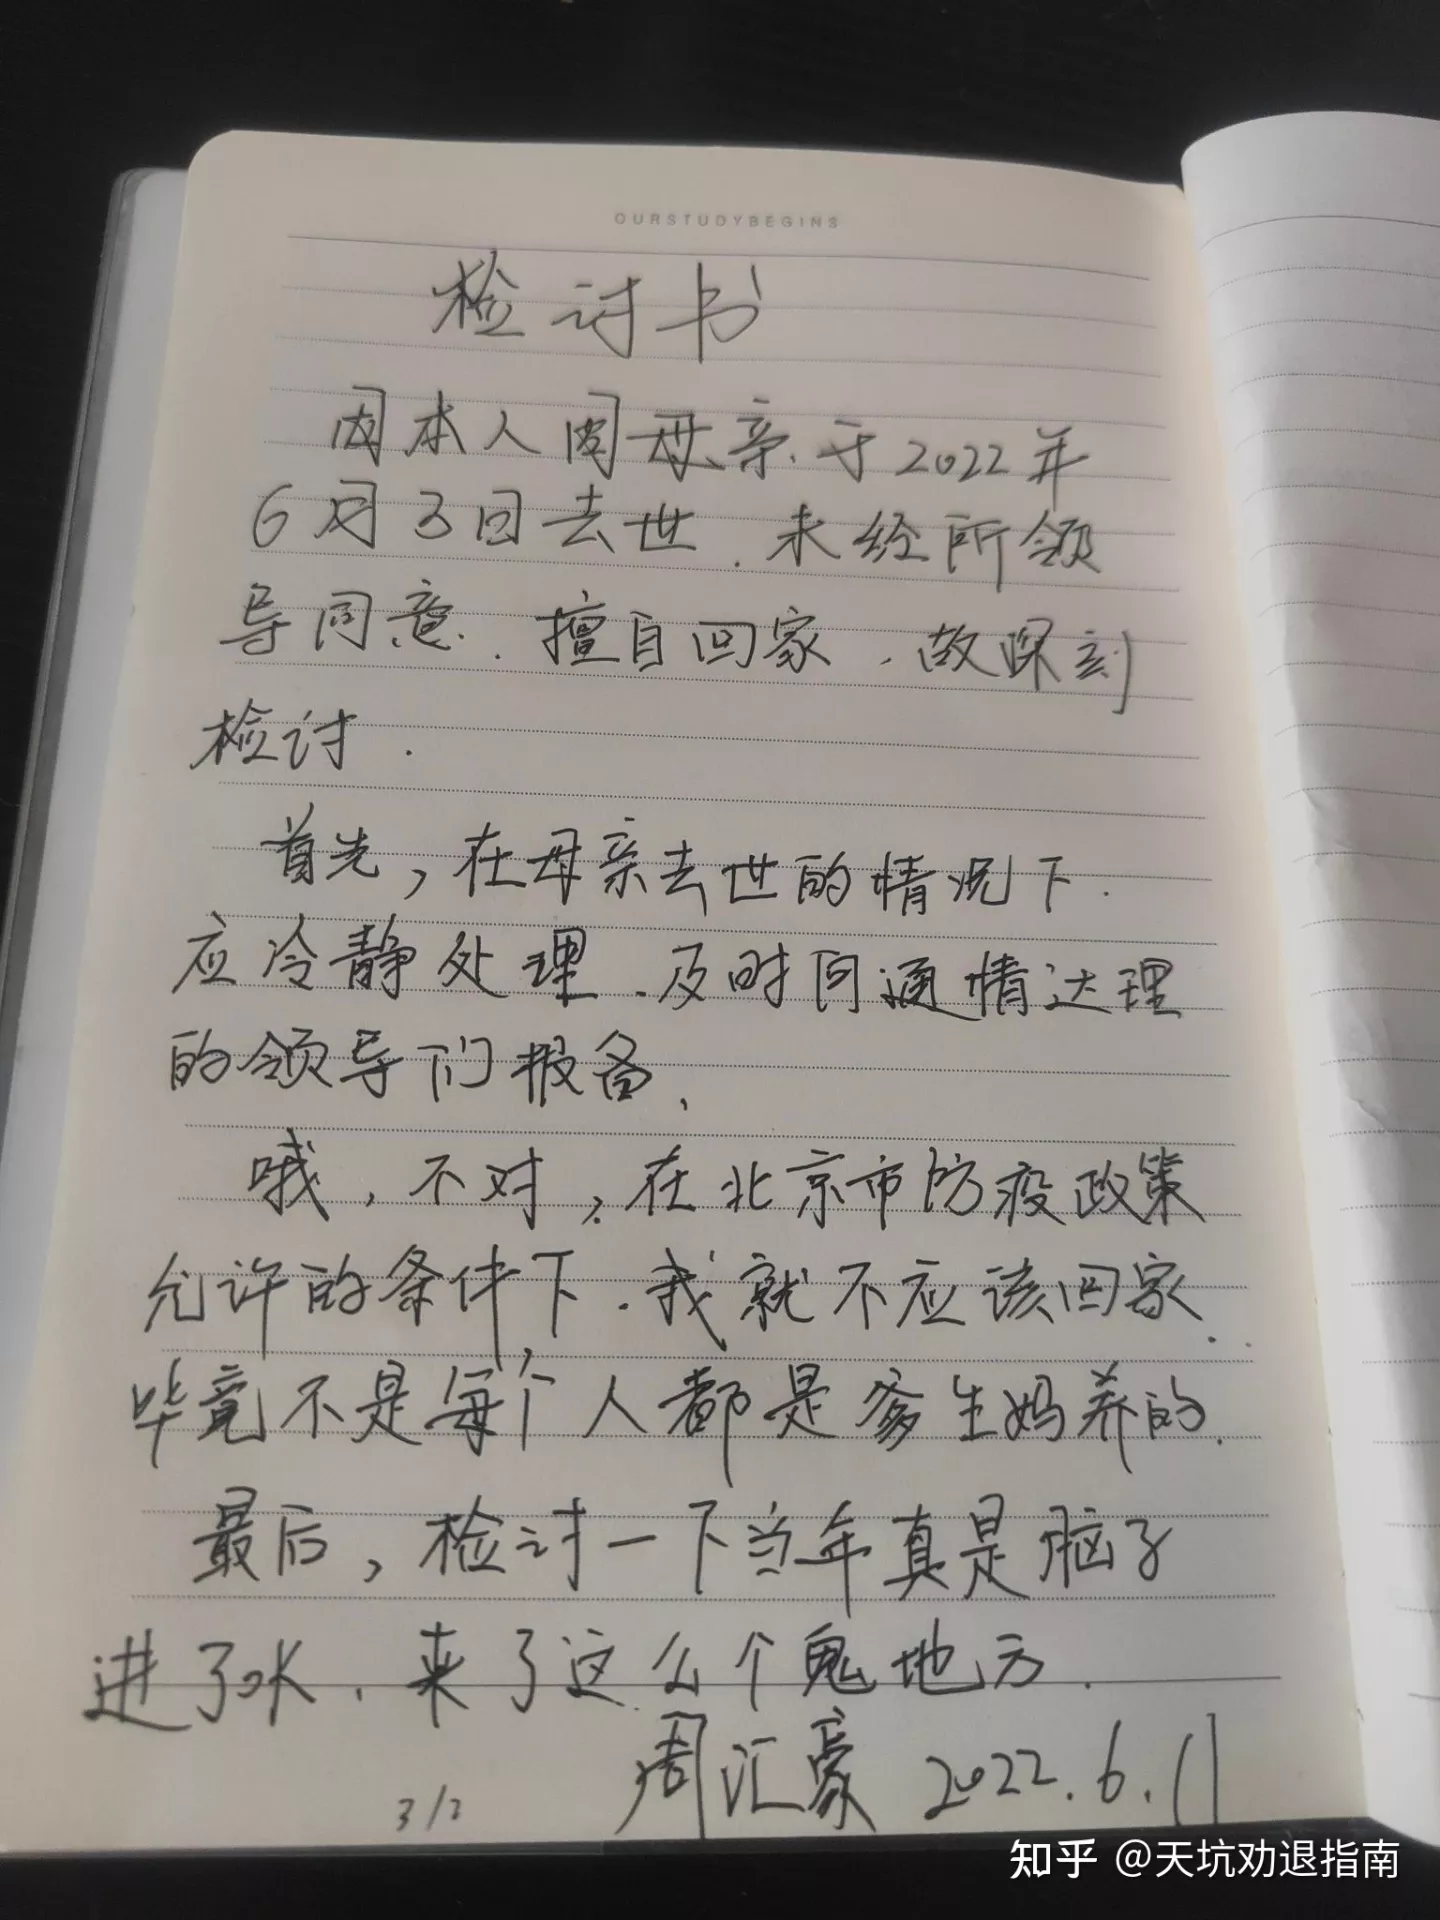 OURSTUDYBEGINS
检讨书
因本人因母亲于2022年
6月3日去世.未经所领
导同意.擅自回家.故深刻
检讨.
首先,在母亲去世的情况下.
应冷静处理.及时向通情达理
的领导们报备.
哦,不对,在北京市防疫政策
允许的条件下.我就不应该回家.
毕竟不是每个人都是爹生妈养的.
最后,检讨一下当年真是脑子
进了水.来了这么个鬼地方.
周汇豪 2022.6.11
知乎 @天坑劝退指南